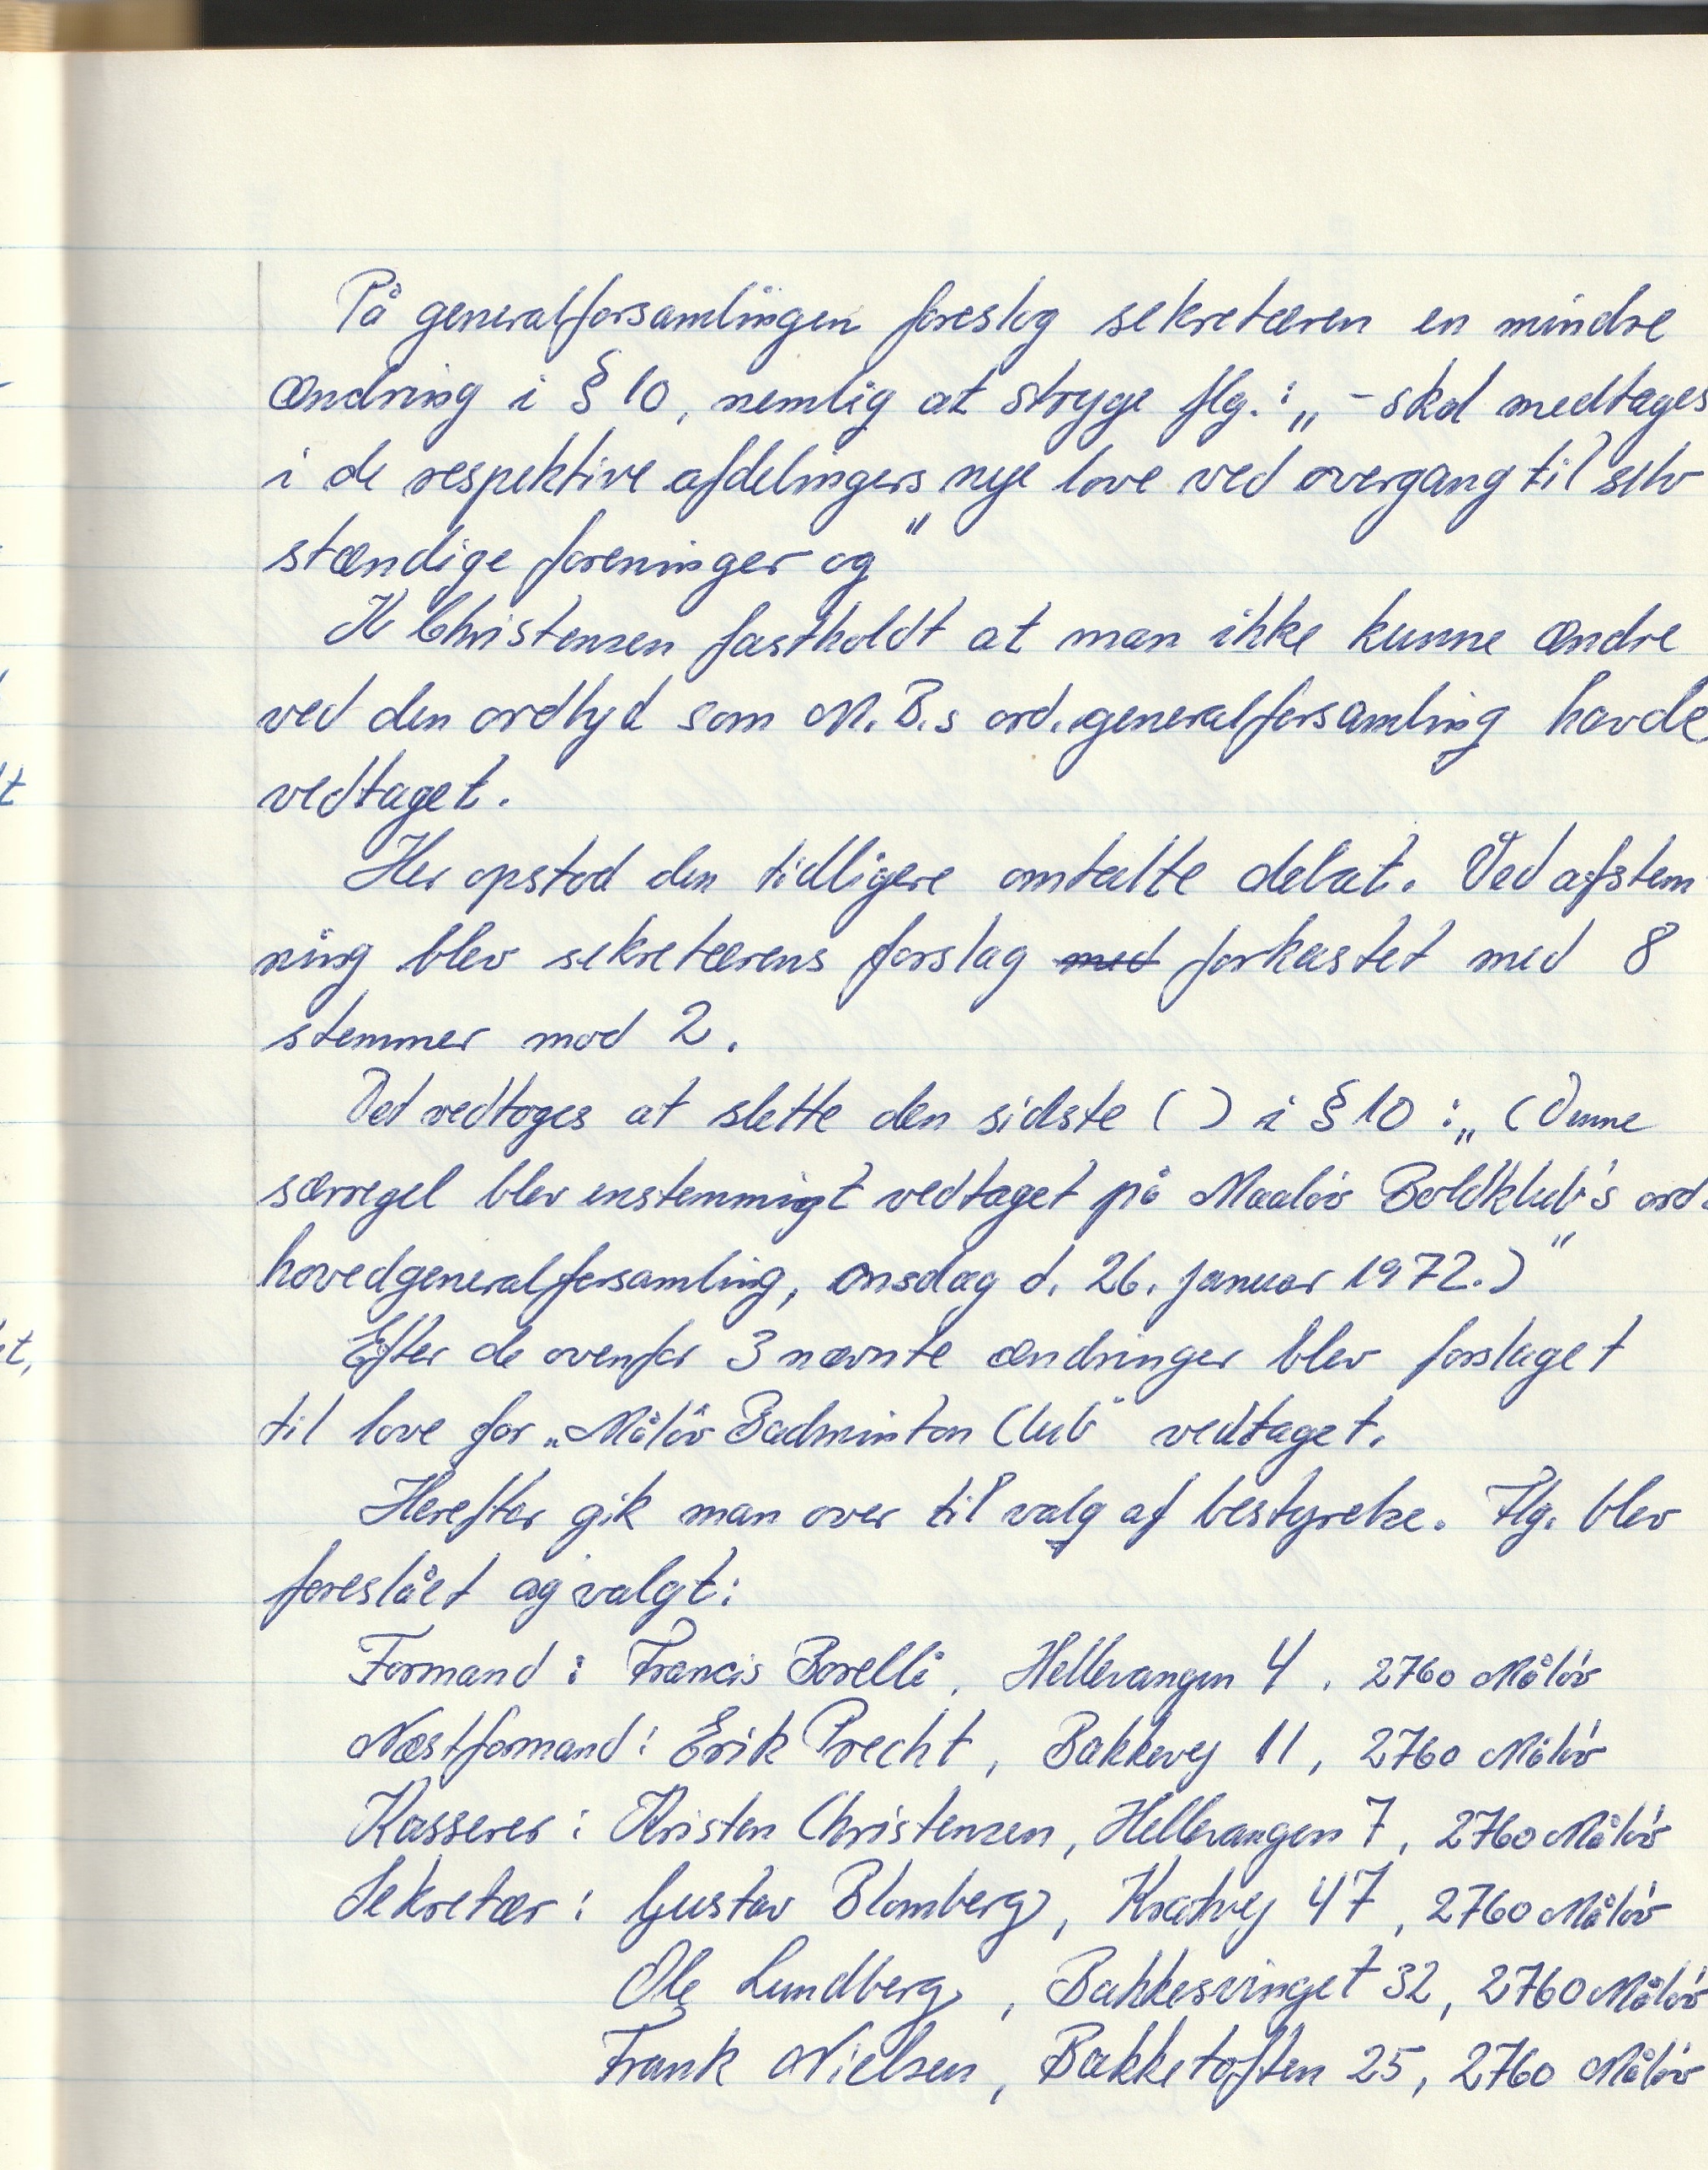 På generalforsamlingen foreslog sekretæren en mindre
ændring i § 10, nemlig at stryge flg.: „ - skal medtages
i de respektive afdelingers nye love ved overgang til selv
stændige foreninger og "
K Christensen fastholdt at man ikke kunne ændre
ved den ordlyd som M.B.s ord. generalforsamling havde
vedtaget.
Her opstod den tidligere omtalte debat. Ved afstem
ning blev sekretærens forslag med forkastet med 8
stemmer mod 2.
Det vedtoges at slette den sidste ( ) i § 10 : „ (Denne
særregel blev enstemmigt vedtaget på Maaløv Boldklub's ord.
hovedgeneralforsamling, onsdag d. 26. januar 1972.) "
Efter de ovenfor 3 nævnte ændringer blev forslaget
til love for „Måløv Badminton Club" vedtaget.
Herefter gik man over til valg af bestyrelse. Flg. blev
foreslået og valgt:
Formand : Francis Borelli, Hellevangen 4, 2760 Måløv
Næstformand : Erik Precht, Bakkevej 11, 2760 Måløv
Kasserer : Kristen Christensen, Hellevangen 7, 2760 Måløv
Sekretær : Gustav Blomberg, Kratvej 47, 2760 Måløv
Ole Lundberg, Bakkesvinget 32, 2760 Måløv
Frank Nielsen, Bakketoften 25, 2760 Måløv